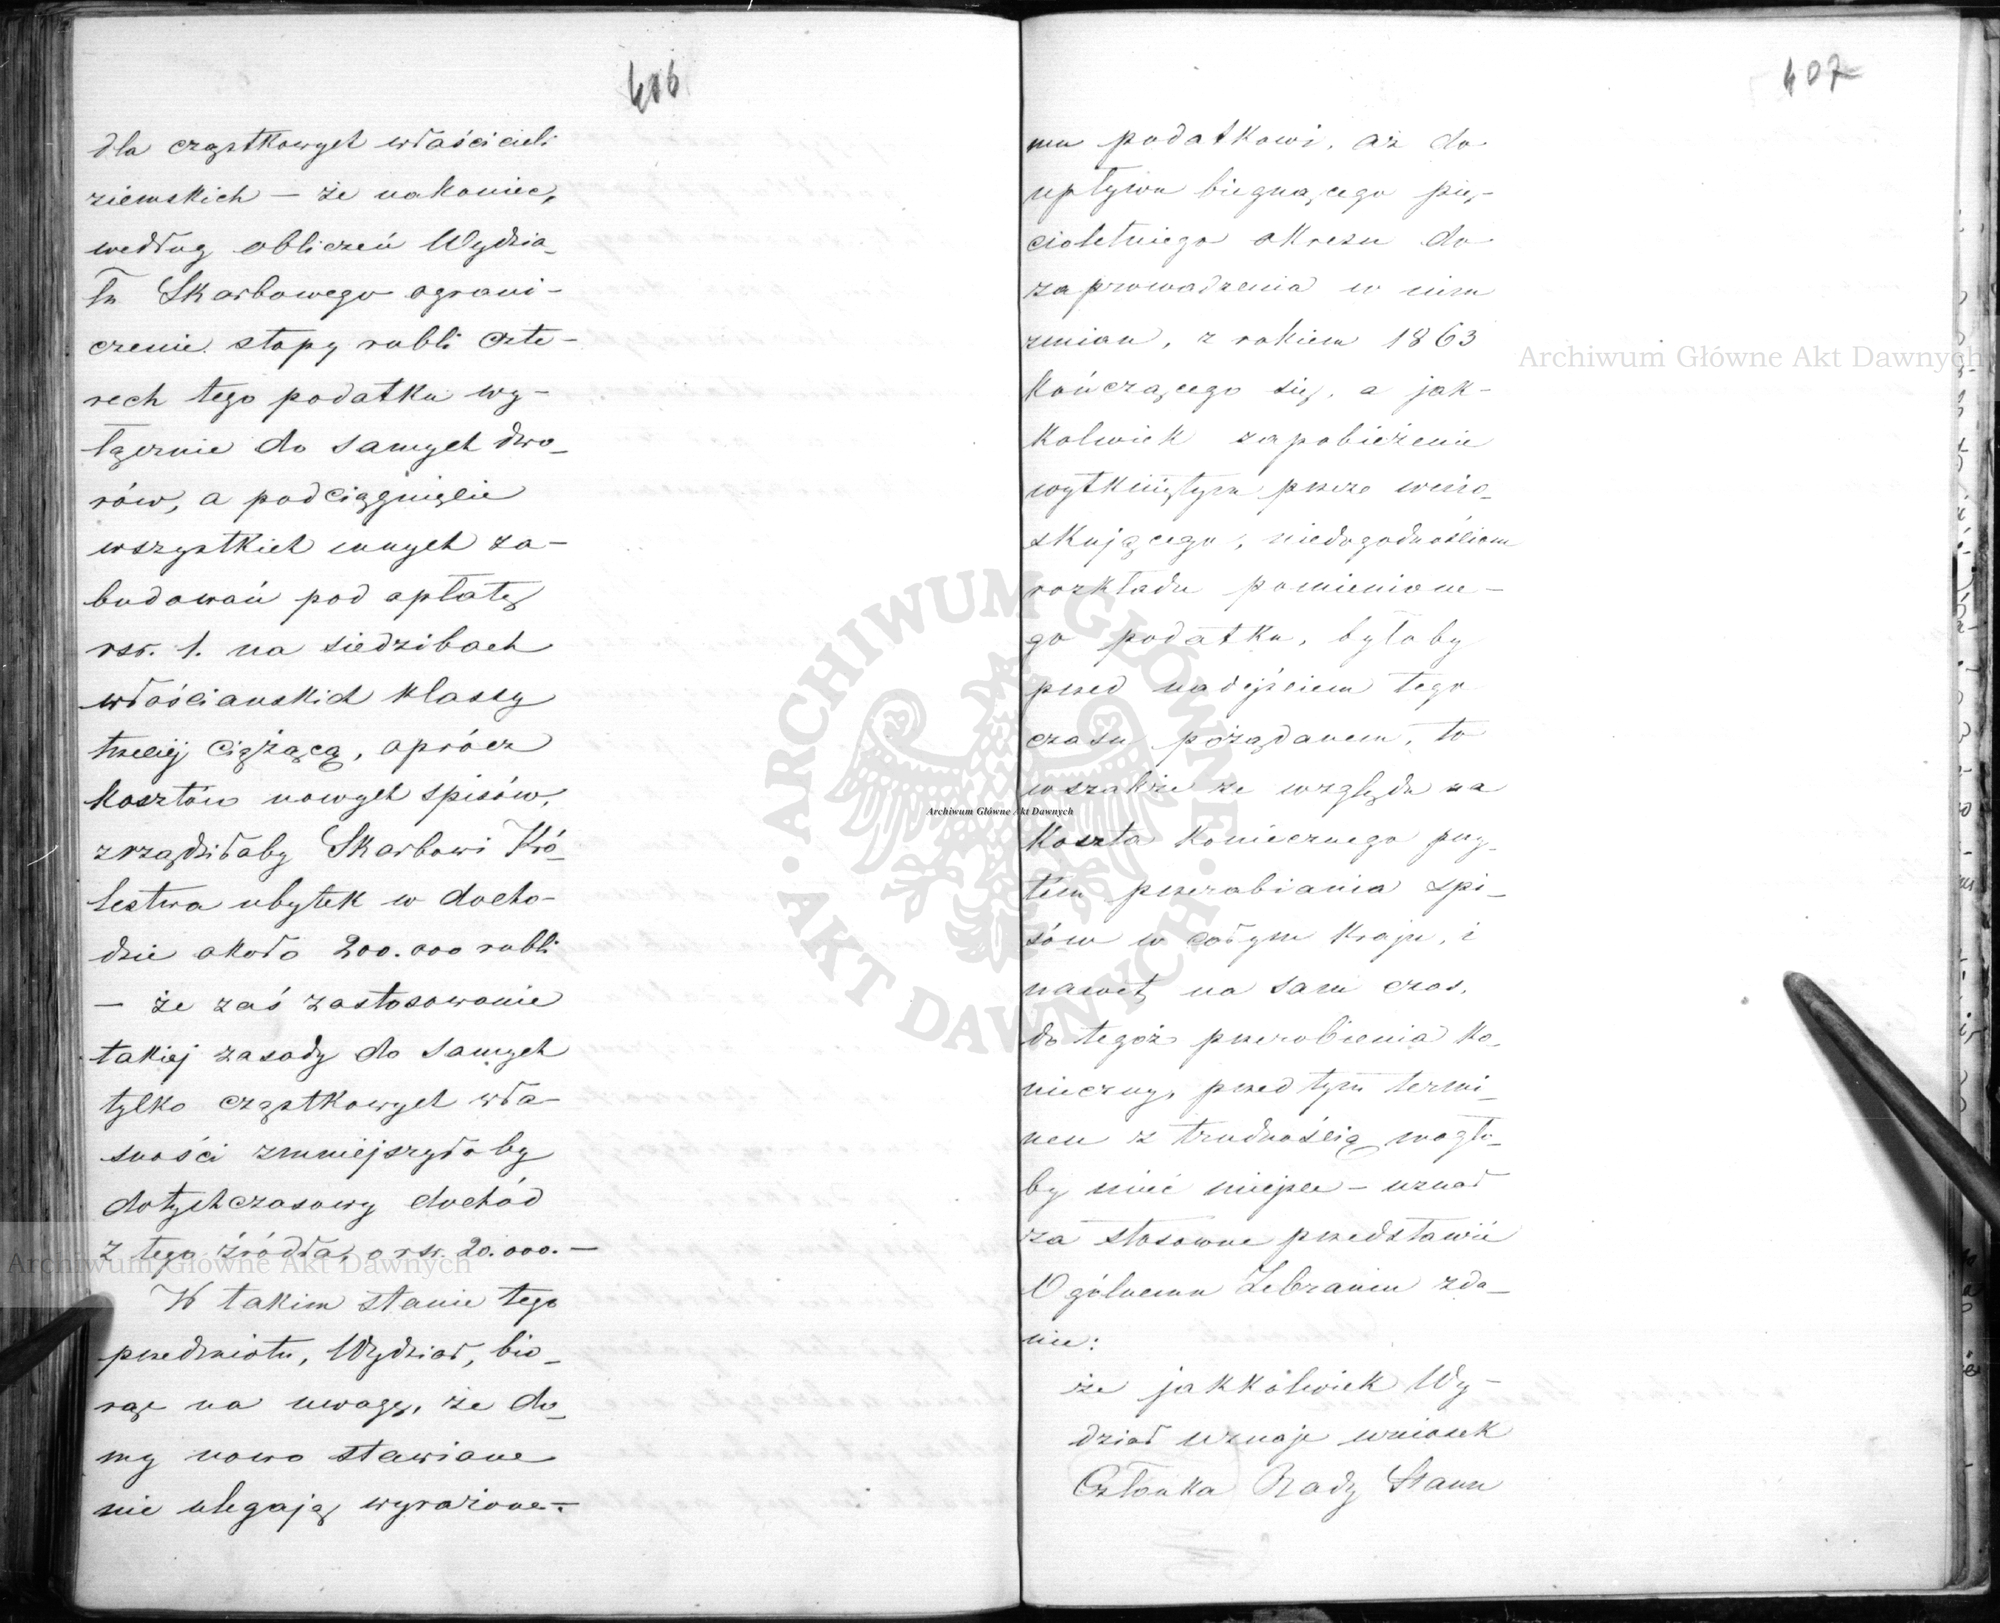 406
dla cząstkowych właścicieli
ziemskich — że nakoniec,
według obliczeń Wydzia-
łu Skarbowego ograni-
czenie stopy rubli czte-
rech tego podatku wy-
łącznie do samych dwo-
rów, a podciągnięcie
wszystkich innych za-
budowań pod opłatę
rsr. 1. na siedzibach
włościańskich klassy
trzeciej ciążącą, oprócz
kosztów nowych spisów,
zrządziłaby Skarbowi Kró-
lestwa ubytek w docho-
dzie około 200.000 rubli
— że zaś zastosowanie
takiej zasady do samych
tylko cząstkowych wła-
sności zmniejszyłoby
dotychczasowy dochód
z tego źródła, o rsr. 20.000. —
W takim stanie tego
przedmiotu, Wydział, bio-
rąc na uwagę, że do-
my nowo stawiane
nie ulegają wyrażone-
407
mu podatkowi, aż do
upływu biegnącego pię-
cioletniego okresu do
zaprowadzenia w nim
zmian, z rokiem 1863
kończącego się, a jak-
kolwiek zapobieżenie
wytkniętym przez wnio-
skującego, niedogodnościom
rozkładu pomienione-
go podatku, byłoby
przed nadejściem tego
czasu pożądanem, to
wszakże ze względu na
koszta koniecznego przy-
tém przerabiania spi-
sów w całym kraju, i
nawet na sam czas,
do tegoż przerobienia ko-
nieczny, przed tym termi-
nem z trudnością mogło-
by mieć miejsce — uznał
za stosowne przedstawić
Ogólnemu Zebraniu zda-
nie:
że jakkolwiek Wy-
dział uznaje wniosek
Członka Rady Stanu
Archiwum Główne Akt Dawnych
Archiwum Główne Akt Dawnych
Archiwum Główne Akt Dawnych
· ARCHIWUM GŁÓWNE · AKT DAWNYCH